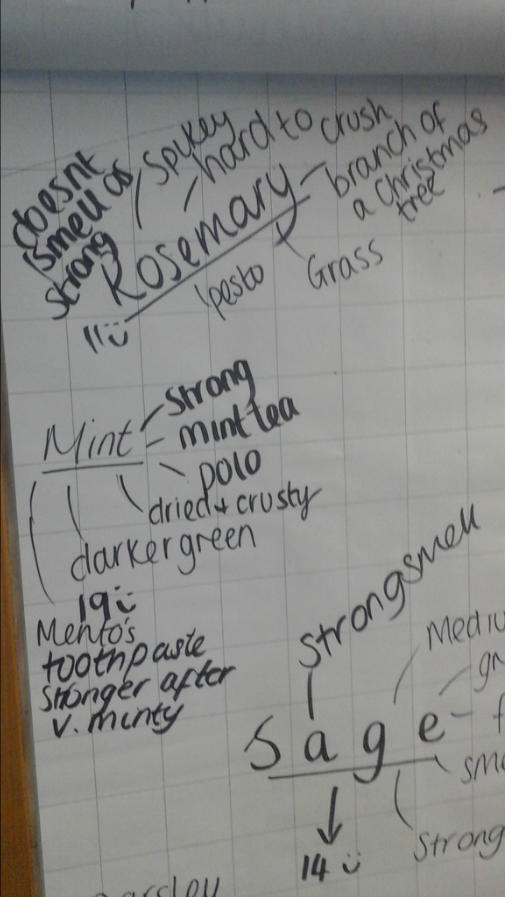 doesnt
smell as
strong
spikey
hard to crush
branch of
a Christmas
tree
Rosemary
pesto
Grass
11
Mint
strong
mint tea
polo
dried + crusty
darker green
19
Mento's
toothpaste
stronger after
v. minty
Strong smell
Sage
14
Strong